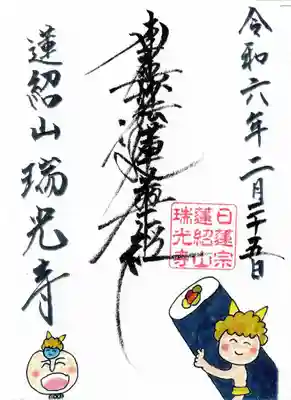 令和六年二月二十五日
南無妙法蓮華経
蓮紹山瑞光寺
日蓮宗
蓮紹山
瑞光寺